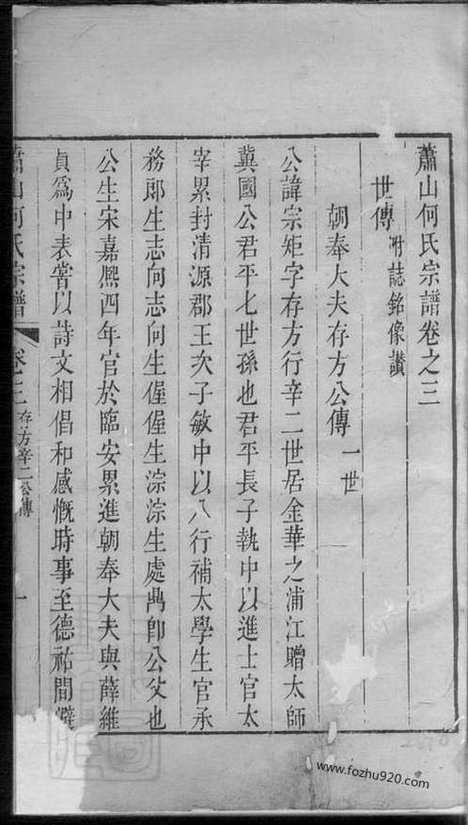 蕭山何氏宗譜卷之三
世傳 附誌銘像讃
朝奉大夫存方公傳 一世
公諱宗矩字存方行辛二世居金華之浦江贈太師
冀國公君平七世孫也君平長子執中以進士官太
宰累封清源郡王次子敏中以八行補太學生官承
務郎生志向志向生偓偓生淙淙生處咼卽公父也
公生宋嘉熙四年官於臨安累進朝奉大夫與薛維
貞爲中表嘗以詩文相倡和感慨時事至德祐間避
蕭山何氏宗譜 卷三 存方辛二公傳 一
www.fozhu920.com